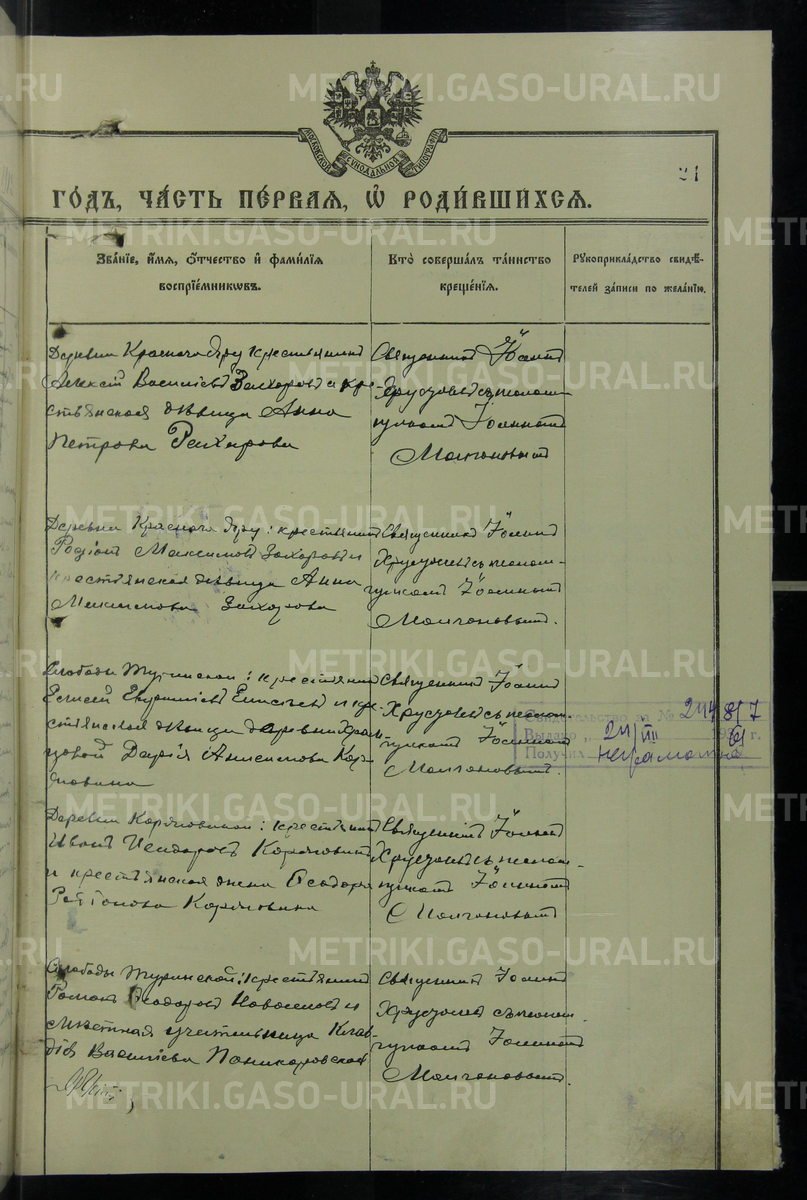 METRIKI.GASO-URAL.RU
МОСКОВСКОЙ СѴНОДАЛЬНОЙ ТИПОГРАФІИ
21
ГО́ДЪ, ЧА́СТЬ ПЕ́РВАЯ, Ѡ҆ РОДИ́ВШИХСЯ.
Зва́нїе, и҆́мя, ѻ҆́тчество и҆ фами́лїя
воспрїе́мникѡвъ.
Кто̀ соверша́лъ та́инство
креще́нїя.
Рꙋкоприкла́дство свидѣ́-
телей за́писи по жела́нїю.
Деревни Краснаго Яру крестьянинъ
Алексѣй Васильевъ Захаровъ и кре-
стьянская дѣвица Анна
Петрова Захарова
Священникъ Іоаннъ
Хрусталевъ съ псалом-
щикомъ Іоанномъ
Молчановымъ
Деревни Краснаго Яру: крестьянинъ
Родіонъ Максимовъ Захаровъ и
крестьянская дѣвица Анна
Максимова Захарова
Священникъ Іоаннъ
съ псалом-
щикомъ Іоанномъ
Молчановымъ.
Слободы Туринской: крестьянинъ
Евсей и кре-
стьянская дѣвица деревни
Дарія Анисимова Кор-
Священникъ Іоаннъ
съ псалом-
щикомъ Іоанномъ
Молчановымъ.
Свидетельство за № 24487
Выдано 24/III г.
Получил неграмотна
Деревни Коряковиной: крестьянинъ
Иванъ Исидоровъ Коряковинъ
и крестьянская жена Ѳеодора
Коряковина
Священникъ Іоаннъ
съ псалом-
щикомъ Іоанномъ
Молчановымъ
Слободы Туринской: крестьянинъ
Романъ Ѳеодоровъ Новоселовъ и
мѣстная учительница Клав-
дія Васильева Поникаровская
Священникъ Іоаннъ
съ псалом-
щикомъ Іоанномъ
Молчановымъ.